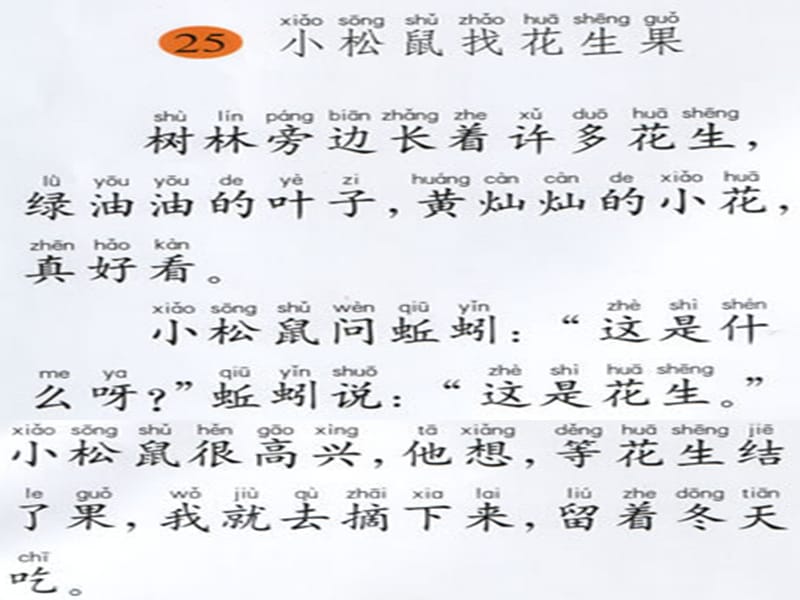 xiǎo sōng shǔ zhǎo huā shēng guǒ
25 小松鼠找花生果
shù lín páng biān zhǎng zhe xǔ duō huā shēng
树林旁边长着许多花生，
lǜ yōu yōu de yè zi huáng càn càn de xiǎo huā
绿油油的叶子，黄灿灿的小花，
zhēn hǎo kàn
真好看。
xiǎo sōng shǔ wèn qiū yǐn zhè shì shén
小松鼠问蚯蚓：“这是什
me ya qiū yǐn shuō zhè shì huā shēng
么呀？”蚯蚓说：“这是花生。”
xiǎo sōng shǔ hěn gāo xìng tā xiǎng děng huā shēng jiē
小松鼠很高兴，他想，等花生结
le guǒ wǒ jiù qù zhāi xia lai liú zhe dōng tiān
了果，我就去摘下来，留着冬天
chī
吃。